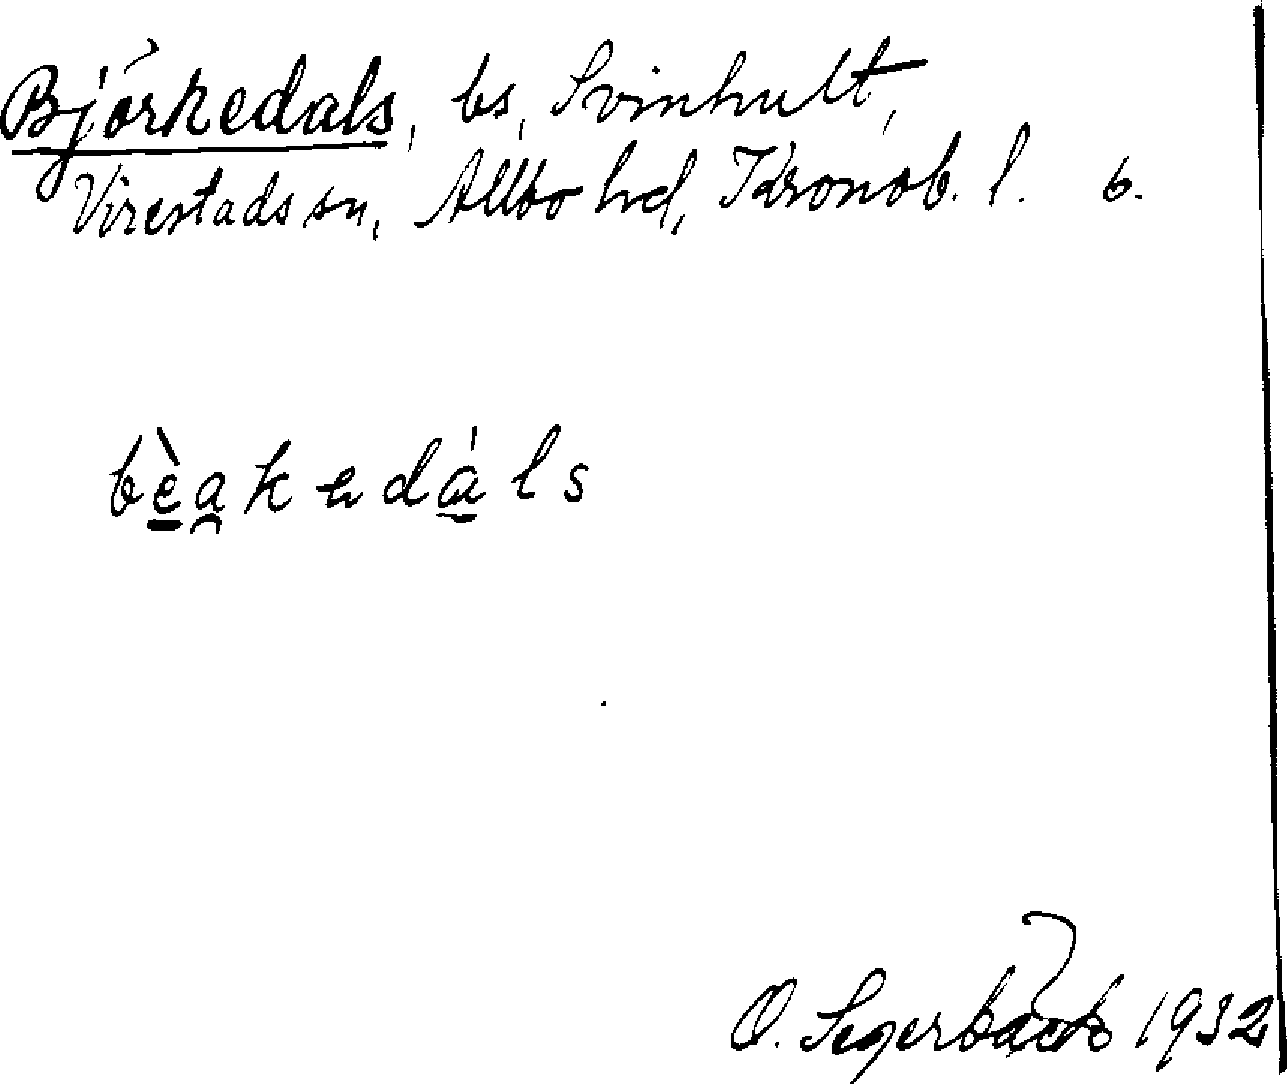 Björkedals, bs, Svinhult,
Virestads sn, Allbo hd, Kronob. l. 6.
bèa̯kedáls
O. Segerbäck 1932